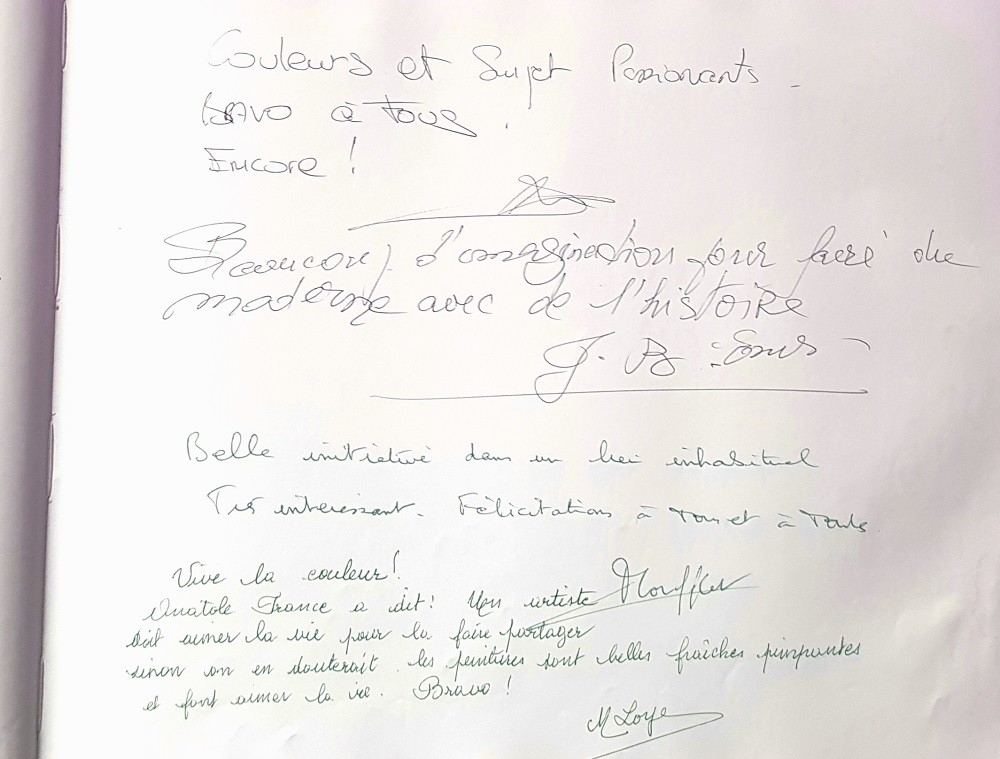 Couleurs et Sujet Passionants -
BRAVO à TOUS.
Encore !
Beaucoup d'imagination pour faire du
moderne avec de l'histoire
J. B.
Belle initiative dans un lieu inhabituel
Très intéressant. Félicitations à Tous et à Toutes
Vive la couleur!
Anatole France a dit! Un artiste
doit aimer la vie pour la faire partager
sinon on en douterait. les peintures sont belles fraîches pimpantes
et font aimer la vie. Bravo !
M Loye